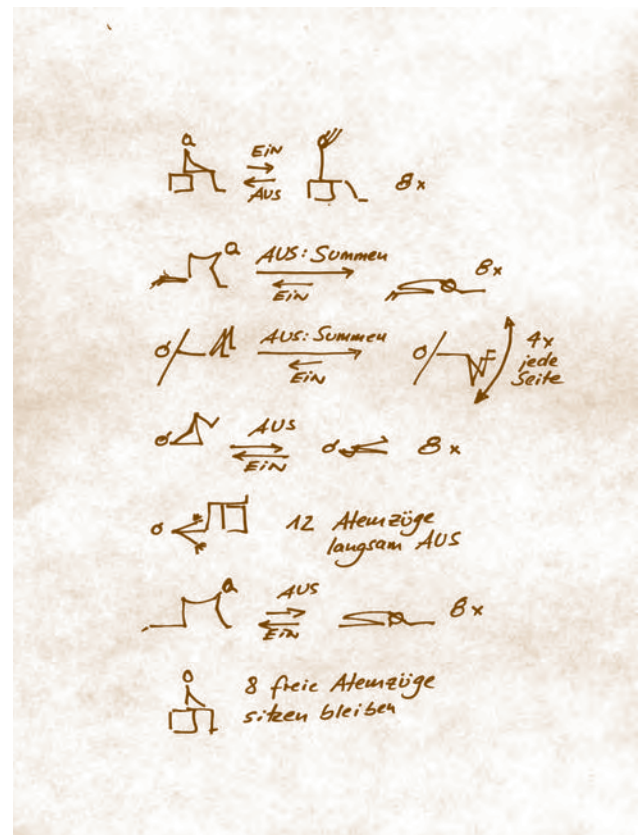 EIN
AUS
8x
AUS: Summen
EIN
8x
AUS: Summen
EIN
4x
jede
Seite
AUS
EIN
8x
12 Atemzüge
langsam AUS
AUS
EIN
8x
8 freie Atemzüge
sitzen bleiben